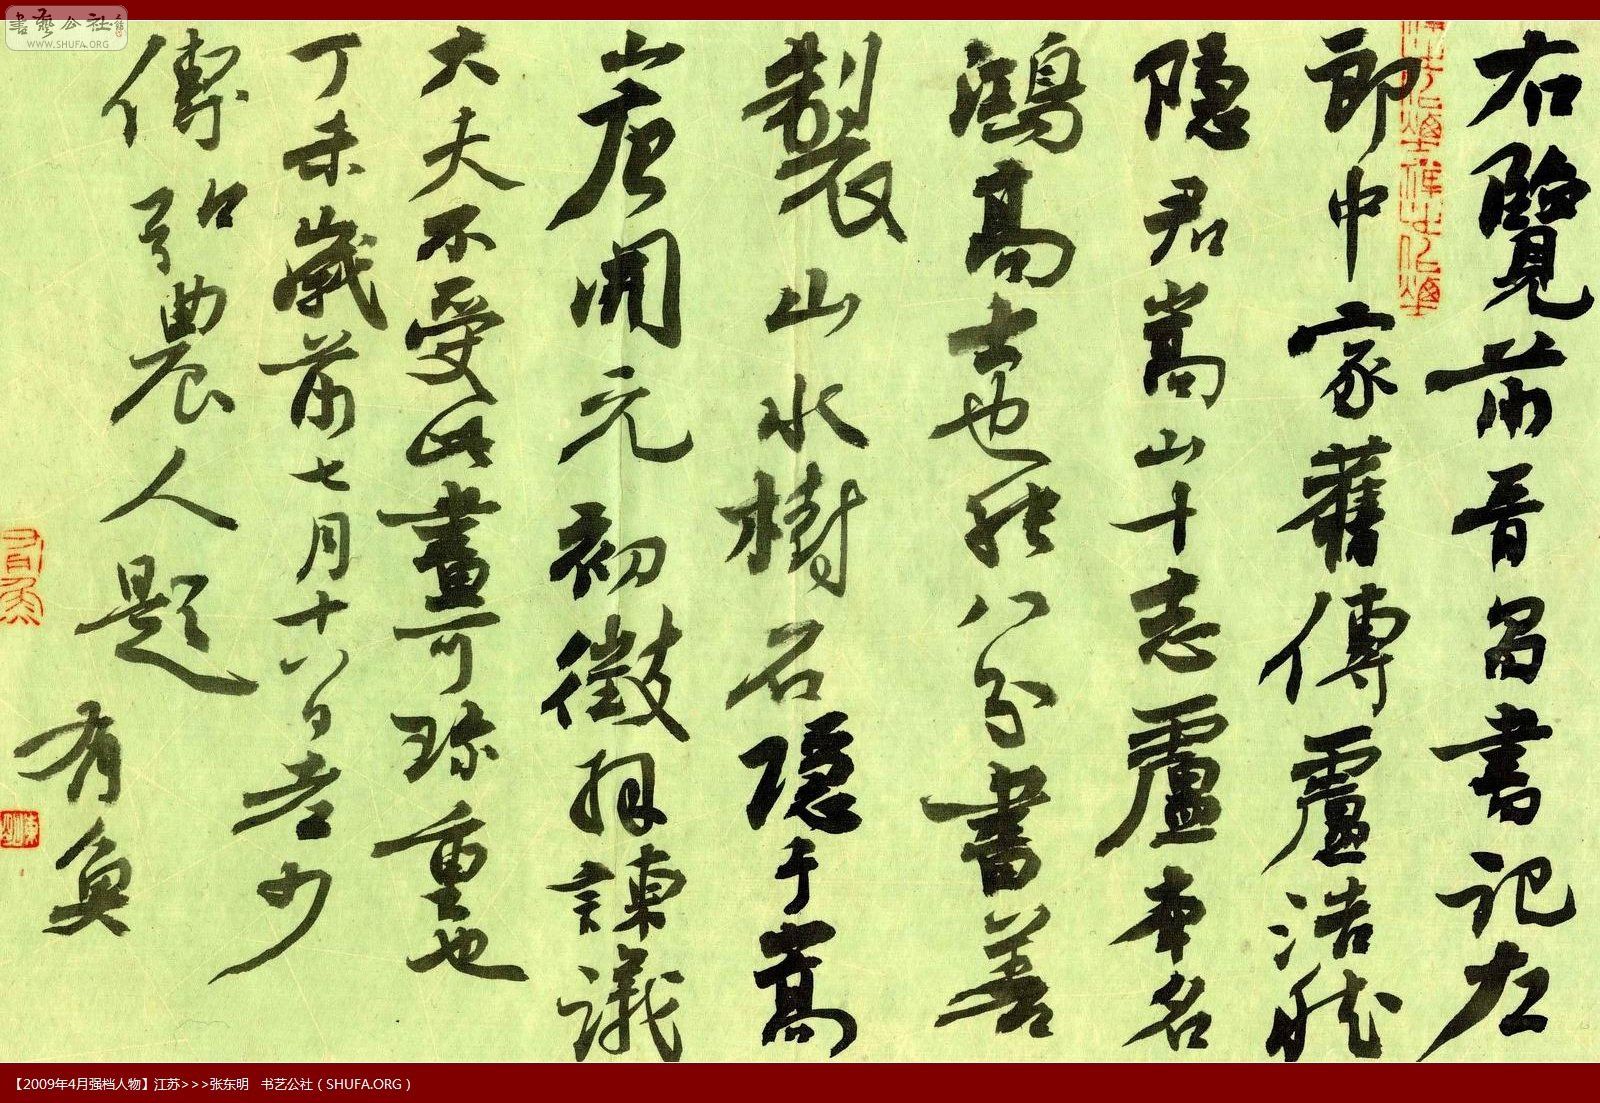 書藝公社
WWW.SHUFA.ORG
右覽前晉昌書記左
郎中家舊傳盧浩然
隱君嵩山十志盧本名
鴻高士也能八分書善
製山水樹石隱于嵩
山唐開元初徵拜諫議
大夫不受此畫可珍重也
丁未歲前七月十八日老少
傅弘農人題 有魚
【2009年4月强档人物】江苏>>>张东明 书艺公社（SHUFA.ORG）